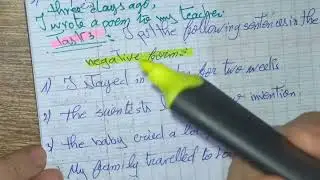 three days ago,
I wrote a poem to my teacher
last 3. I put the following sentences in the
negative forms
1) I stayed in for two weeks
2) the scientists invention.
3) the baby cried a lo
My family travelled to